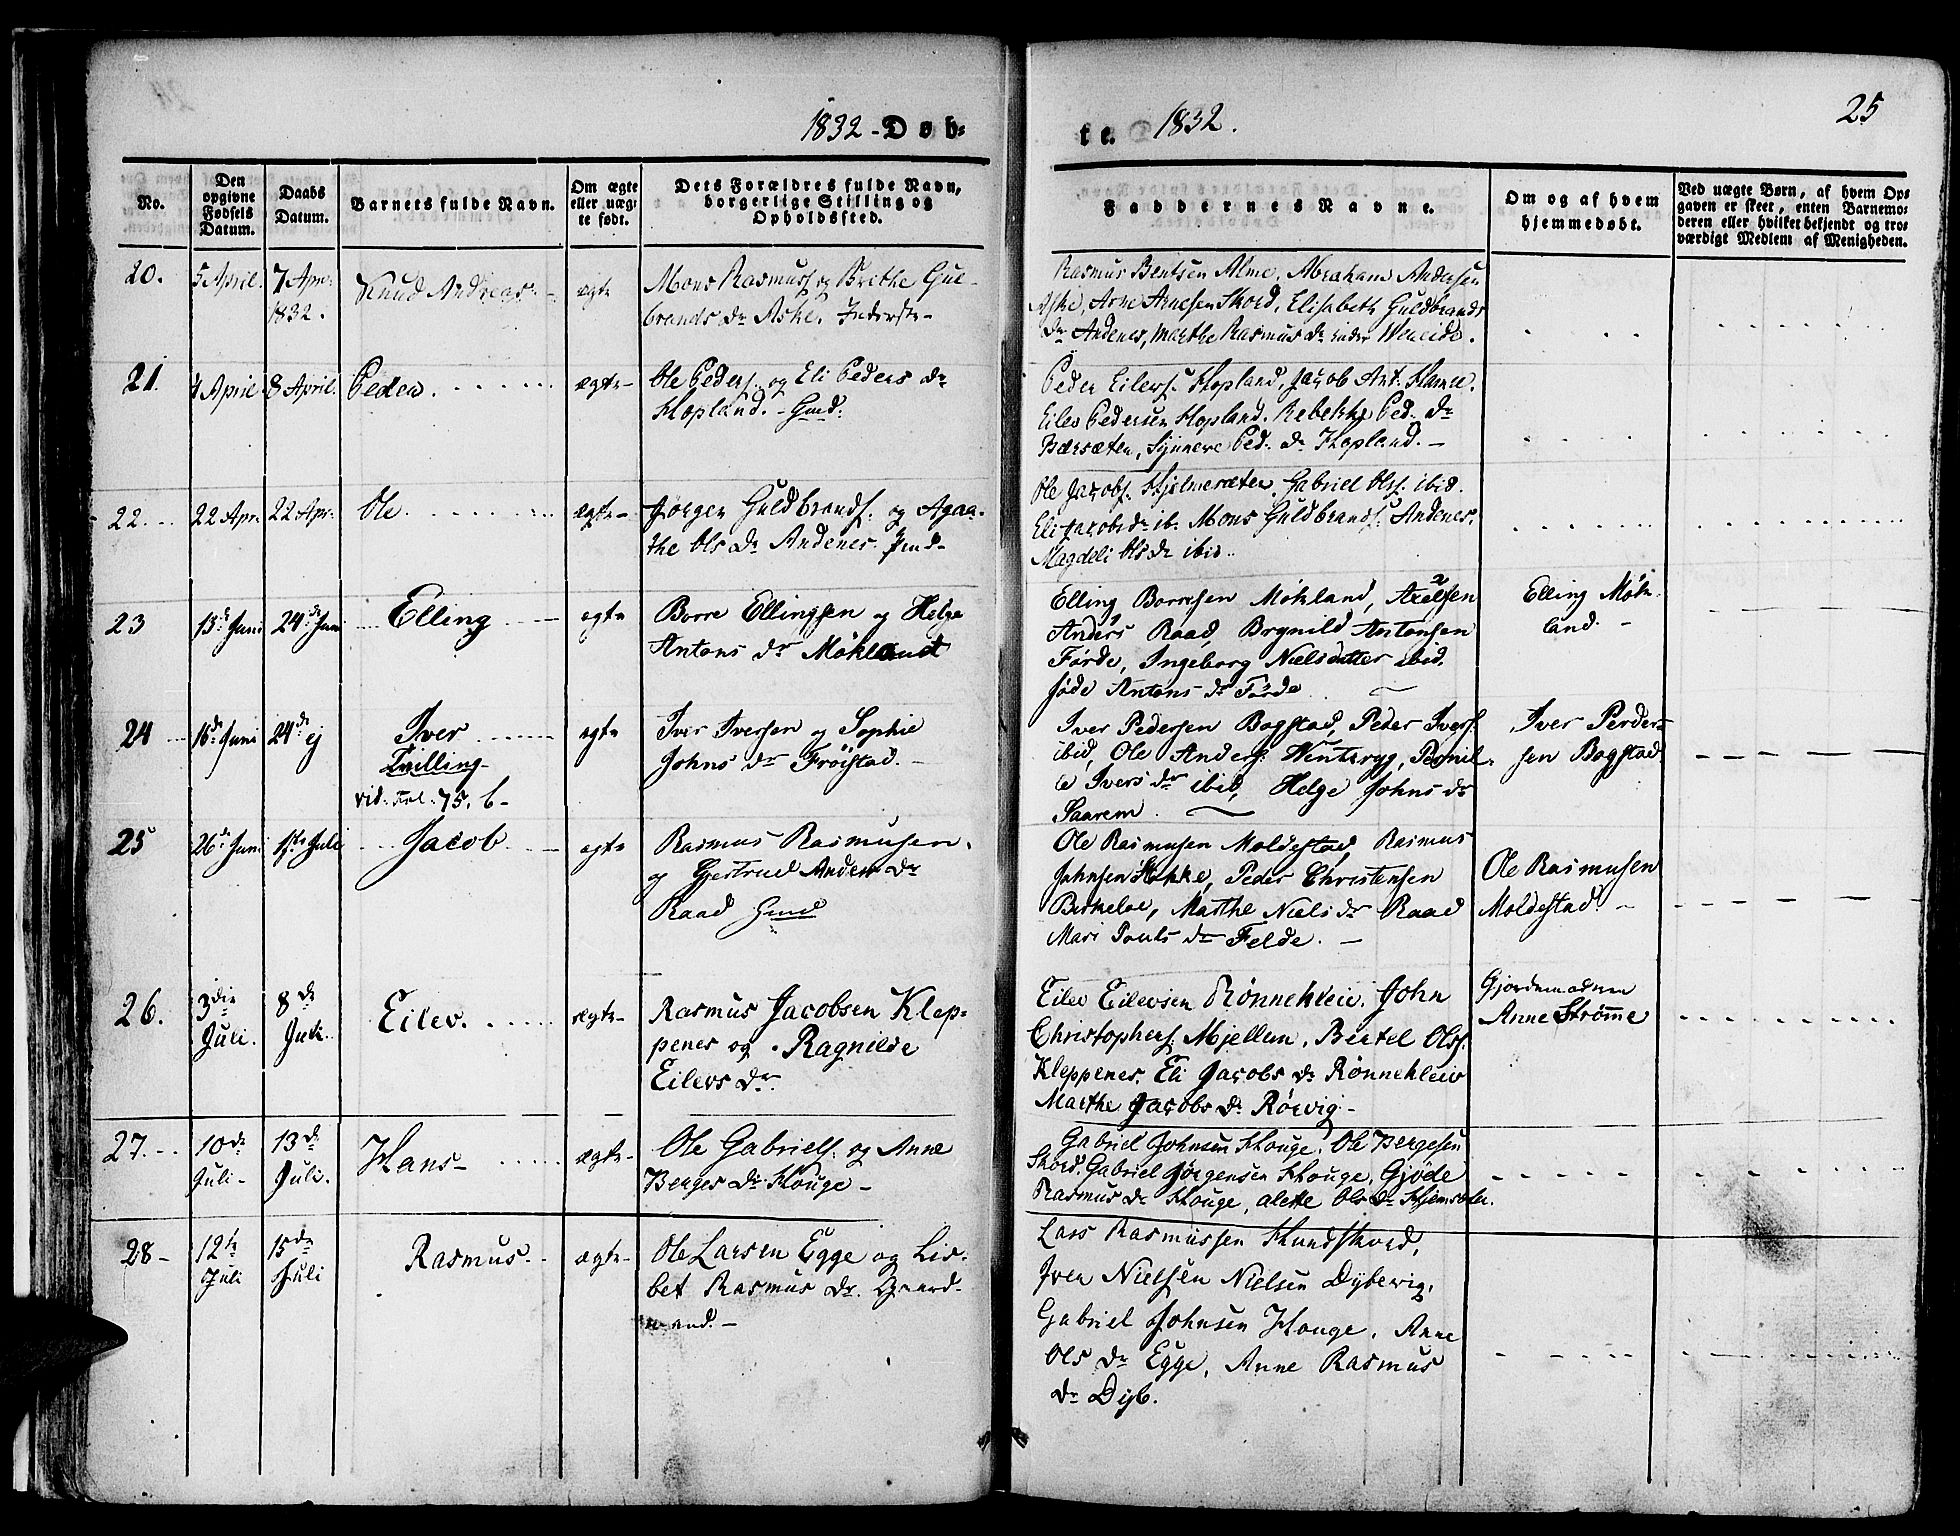 1832 - Døb-
te. 1832.
25
No.
Den opgivne Fødsels Datum.
Daabs Datum.
Barnets fulde Navn.
Om ægte eller uægte født.
Dets Forældres fulde Navn, borgerlige Stilling og Opholdssted.
Faddernes Navne.
Om og af hvem hjemmedøbt.
Ved uægte Børn, af hvem Opgaven er skeet, enten Barnemoderen eller hvilket bekjendt og troværdigt Medlem af Menigheden.
20. 5 April. 7 Apr: 1832. Knud Andreas - ægte
Mons Rasmuss og Brithe Gul-
brands Dr Aske. Inderste -
Rasmus Bentsen Alme, Abraham Andersen
Aske, Arne Arnesen Skord, Elisabeth Guldbrands
Dr Andenes, Marthe Rasmus Dr
21. 7 April 8 April. Peder ægte -
Ole Peders. og Eli Peders Dr
Hopland. - Gmd:
Peder Eilers. Hopland, Jacob Ant: Hamre.
Eilev Pedersen Hopland. Rebekke Ped: Dr
Bærsæten, Synneve Ped: Dr Hopland. -
22. 22 Apr. 22 Apr: Ole. ægte -
Jørgen Guldbrands. og Agaa-
the Ols Dr Andenes.
Ole Jacobs. Hjelmesæter. Gabriel Olss. ibid.
Eli Jacobs Dr ib. Mons Guldbrands. Andenes.
Magdeli Ols Dr ibid.
23 13de Juni 24de Juni Elling ægte
Borre Ellingsen og Helge
Antons Dr Møkland
Elling Borresen Møkland, Axelsen
Anders Raad, Brynild Antonsen
Førde, Ingeborg Nielsdatter ibid.
Jøde Antons Dr Førde
Elling Møk-
land. -
24 16de Juni 24de ej Iver ægte
Tvilling
vid. Fol. 75. b -
Iver Iversen og Sophie
Johns Dr Frøistad. -
Iver Pedersen Bogstad, Peder Ivers.
ibid, Ole Anders. Wenteryg, Pernil-
le Ivers Dr ibid, Helge Johns Dr
Saarem.
Iver Peder-
sen Bogstad
25 26de Juni 1ste Juli Jacob ægte
Rasmus Rasmusen.
og Gjertrud Anders Dr
Raad Gmd
Ole Rasmusen Moldestad, Rasmus
Johnsen Hokke, Peder Christensen
Birkeloe, Marthe Niels Dr Raad
Mari Pouls Dr Felde. -
Ole Rasmusen
Moldestad. -
26. 3die Juli. 8de Juli. Eilev. ægte -
Rasmus Jacobsen Klep-
penes og Ragnilde
Eilevs Dr.
Eilev Eilevsen Rønnekleiv. John
Christophers. Mjellem. Bertel Olss.
Kleppenes. Eli Jacobs Dr Rønnekleiv
Marthe Jacobs Dr Rørvig -
Gjordemodren
Anne Strømme
27. 10de Juli - 13de Juli. Hans - ægte -
Ole Gabriels. og Anne
Berges Dr Houge -
Gabriel Johnsen Houge. Ole Bergesen
Skord. Gabriel Jørgensen Houge, Gjøde
Rasmus Dr Houge, Alette Ols Dr
28 - 12te Juli 15de Juli Rasmus. - ægte -
Ole Larsen Egge og Lis-
bet Rasmus Dr. Gaard-
mand. -
Lars Rasmussen Hundskord,
Iver Nielsen Nielsen Dybevig,
Gabriel Johnsen Houge. Anne
Ols Dr Egge, Anne Rasmus
Dr Dyb.